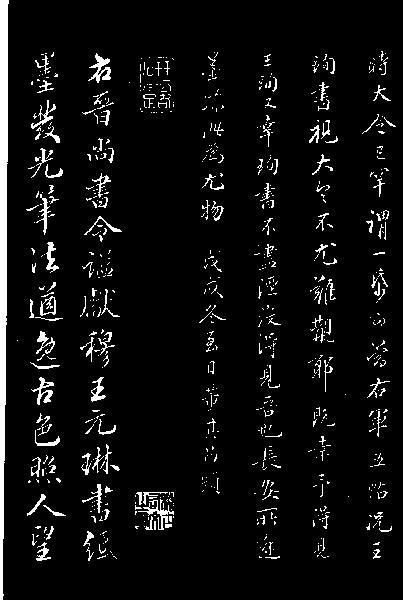 時大令已罕謂一帋可當右軍五帖況王
珣書視大令不尤難覯耶既幸予得見
王珣又幸珣書不盡湮沒得見吾也長安所逢
墨跡此為尤物 戊戌冬至日董其昌題
右晉尚書令謚獻穆王元琳書紙
墨發光筆法遒逸古色照人望